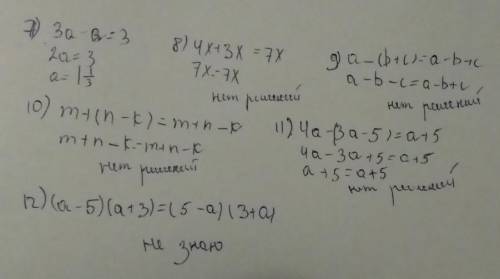 7) 3a - a = 3
2a = 3
a = 1 1/3
8) 4x + 3x = 7x
7x = 7x
нет решений
9) a - (b + c) = a - b + c
a - b - c = a - b + c
нет решений
10) m + (n - k) = m + n - k
m + n - k = m + n - k
нет решений
11) 4a - (3a - 5) = a + 5
4a - 3a + 5 = a + 5
a + 5 = a + 5
нет решений
12) (a - 5)(a + 3) = (5 - a)(3 + a)
не знаю